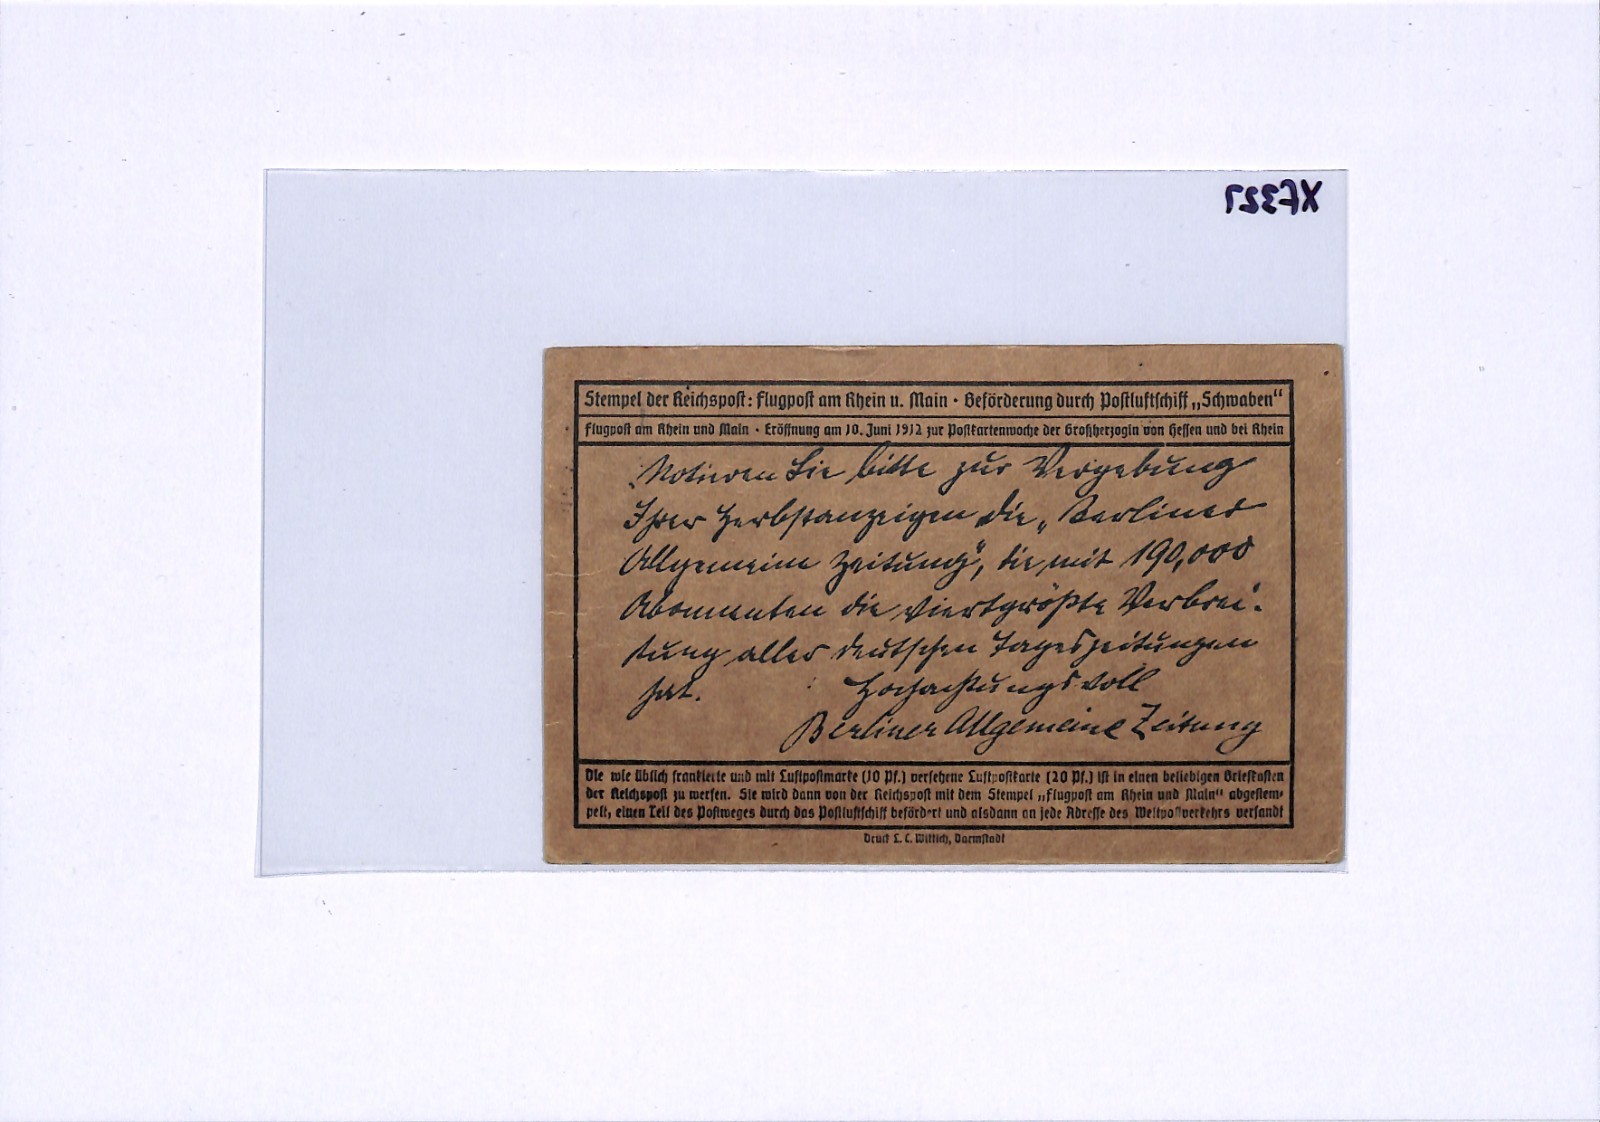 XF327
Stempel der Reichspost: Flugpost am Rhein u. Main · Beförderung durch Postluftschiff „Schwaben“
Flugpost am Rhein und Main · Eröffnung am 10. Juni 1912 zur Postkartenwoche der Großherzogin von Hessen und bei Rhein
Notieren Sie bitte zur Vergebung
Ihrer Herbstanzeigen die „Berliner
Allgemeine Zeitung“, die mit 190,000
Abonnenten die viertgrößte Verbrei-
tung aller deutschen Tageszeitungen
hat. Hochachtungsvoll
Berliner Allgemeine Zeitung
Die wie üblich frankierte und mit Luftpostmarke (10 Pf.) versehene Luftpostkarte (20 Pf.) ist in einen beliebigen Briefkasten
der Reichspost zu werfen. Sie wird dann von der Reichspost mit dem Stempel „Flugpost am Rhein und Main“ abgestem-
pelt, einen Teil des Postweges durch das Postluftschiff befördert und alsdann an jede Adresse des Weltpostverkehrs versandt
Druck L. C. Wittich, Darmstadt